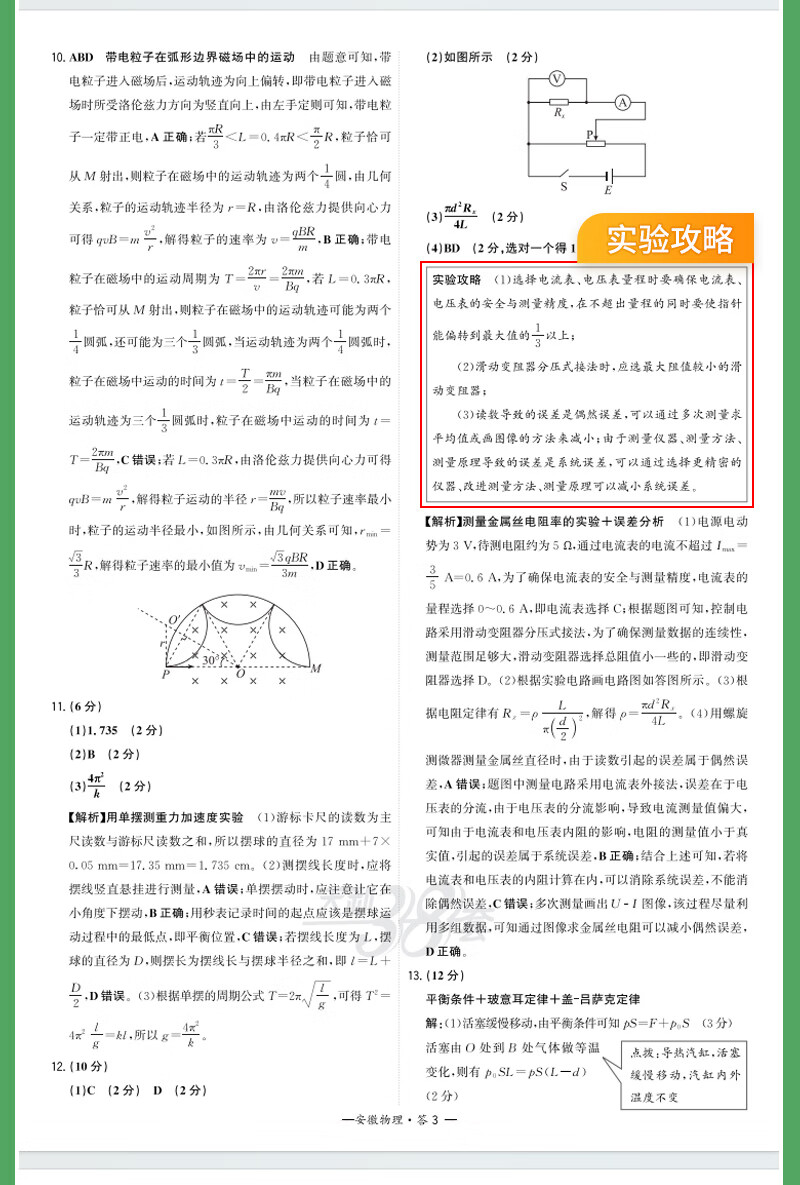 10. ABD 带电粒子在弧形边界磁场中的运动 由题意可知,带
电粒子进入磁场后,运动轨迹为向上偏转,即带电粒子进入磁
场时所受洛伦兹力方向为竖直向上,由左手定则可知,带电粒
子一定带正电,A 正确;若πR/3<L=0.4πR<π/2R,粒子恰可
从 M 射出,则粒子在磁场中的运动轨迹为两个1/4圆,由几何
关系,粒子的运动轨迹半径为 r=R,由洛伦兹力提供向心力
可得 qvB=m v²/r,解得粒子的速率为 v=qBR/m,B 正确;带电
粒子在磁场中的运动周期为 T=2πr/v=2πm/Bq,若 L=0.3πR,
粒子恰可从 M 射出,则粒子在磁场中的运动轨迹可能为两个
1/4圆弧,还可能为三个1/3圆弧,当运动轨迹为两个1/4圆弧时,
粒子在磁场中运动的时间为 t=T/2=πm/Bq,当粒子在磁场中的
运动轨迹为三个1/3圆弧时,粒子在磁场中运动的时间为 t=
T=2πm/Bq,C 错误;若 L=0.3πR,由洛伦兹力提供向心力可得
qvB=m v²/r,解得粒子运动的半径 r=mv/Bq,所以粒子速率最小
时,粒子的运动半径最小,如图所示,由几何关系可知,rmin=
√3/3R,解得粒子速率的最小值为 vmin=√3qBR/3m,D 正确。
O′
r
30°
P
O
M
11. (6 分)
(1)1.735 (2 分)
(2)B (2 分)
(3)4π²/k (2 分)
【解析】用单摆测重力加速度实验 (1)游标卡尺的读数为主
尺读数与游标尺读数之和,所以摆球的直径为 17 mm+7×
0.05 mm=17.35 mm=1.735 cm。(2)测摆线长度时,应将
摆线竖直悬挂进行测量,A 错误;单摆摆动时,应注意让它在
小角度下摆动,B 正确;用秒表记录时间的起点应该是摆球运
动过程中的最低点,即平衡位置,C 错误;若摆线长度为 L,摆
球的直径为 D,则摆长为摆线长与摆球半径之和,即 l=L+
D/2,D 错误。(3)根据单摆的周期公式 T=2π√(l/g),可得 T²=
4π² l/g=kl,所以 g=4π²/k。
12. (10 分)
(1)C (2 分) D (2 分)
(2)如图所示 (2 分)
V
Rx
A
P
S
E
(3)πd²Rx/4L (2 分)
(4)BD (2 分,选对一个得 1
实验攻略
实验攻略 (1)选择电流表、电压表量程时要确保电流表、
电压表的安全与测量精度,在不超出量程的同时要使指针
能偏转到最大值的1/3以上;
(2)滑动变阻器分压式接法时,应选最大阻值较小的滑
动变阻器;
(3)读数导致的误差是偶然误差,可以通过多次测量求
平均值或画图像的方法来减小;由于测量仪器、测量方法、
测量原理导致的误差是系统误差,可以通过选择更精密的
仪器、改进测量方法、测量原理可以减小系统误差。
【解析】测量金属丝电阻率的实验+误差分析 (1)电源电动
势为 3 V,待测电阻约为 5 Ω,通过电流表的电流不超过 Imax=
3/5 A=0.6 A,为了确保电流表的安全与测量精度,电流表的
量程选择 0~0.6 A,即电流表选择 C;根据题图可知,控制电
路采用滑动变阻器分压式接法,为了确保测量数据的连续性,
测量范围足够大,滑动变阻器选择总阻值小一些的,即滑动变
阻器选择 D。(2)根据实验电路画电路图如答图所示。(3)根
据电阻定律有 Rx=ρ L/π(d/2)²,解得 ρ=πd²Rx/4L。(4)用螺旋
测微器测量金属丝直径时,由于读数引起的误差属于偶然误
差,A 错误;题图中测量电路采用电流表外接法,误差在于电
压表的分流,由于电压表的分流影响,导致电流测量值偏大,
可知由于电流表和电压表内阻的影响,电阻的测量值小于真
实值,引起的误差属于系统误差,B 正确;结合上述可知,若将
电流表和电压表的内阻计算在内,可以消除系统误差,不能消
除偶然误差,C 错误;多次测量画出 U-I 图像,该过程尽量利
用多组数据,可知通过图像求金属丝电阻可以减小偶然误差,
D 正确。
13. (12 分)
平衡条件+玻意耳定律+盖-吕萨克定律
解:(1)活塞缓慢移动,由平衡条件可知 pS=F+p₀S (3 分)
活塞由 O 处到 B 处气体做等温
变化,则有 p₀SL=pS(L-d)
(2 分)
点拨:导热汽缸,活塞
缓慢移动,汽缸内外
温度不变
安徽物理·答 3